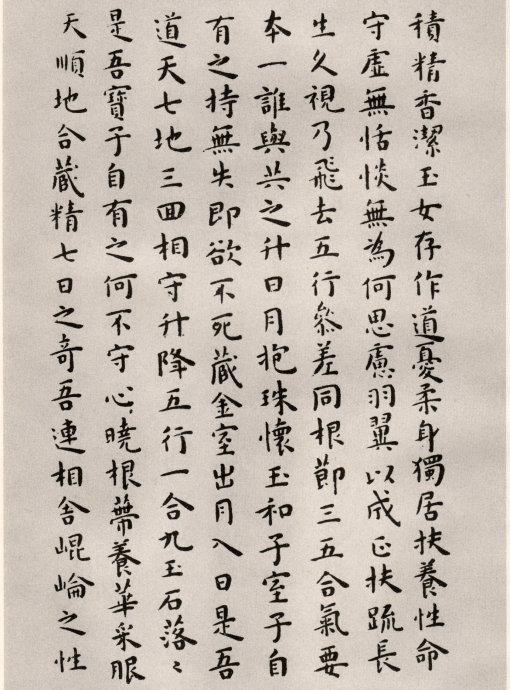 積精香潔玉女存作道憂柔身獨居扶養性命
守虛無恬惔無為何思慮羽翼以成正扶踈長
生久視乃飛去五行參差同根節三五合氣要
本一誰與共之升日月抱珠懷玉和子室子自
有之持無失即欲不死藏金室出月入日是吾
道天七地三回相守升降五行一合九玉石落〻
是吾寶子自有之何不守心曉根蔕養華采服
天順地合藏精七日之奇吾連相舍崐崘之性